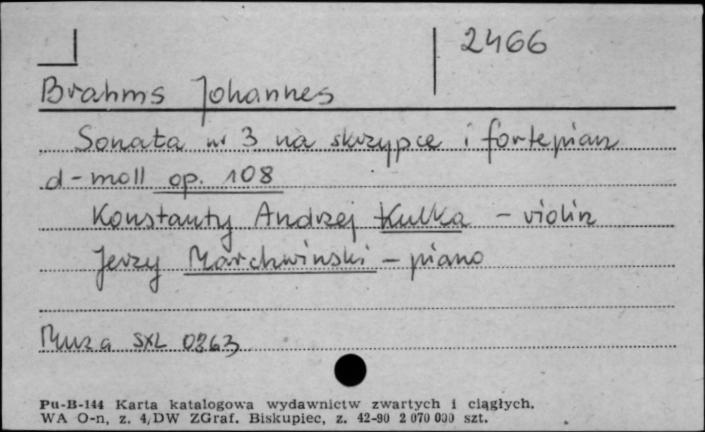 2466
Brahms Johannes
Sonata nr 3 na skrzypce i fortepian
d-moll op. 108
Konstanty Andrzej Kulka - violin
Jerzy Marchwiński - piano
Muza SXL 0263
Pu-B-144 Karta katalogowa wydawnictw zwartych i ciągłych.
WA O-n, z. 4/DW ZGraf. Biskupiec, z. 42-90 2 070 000 szt.